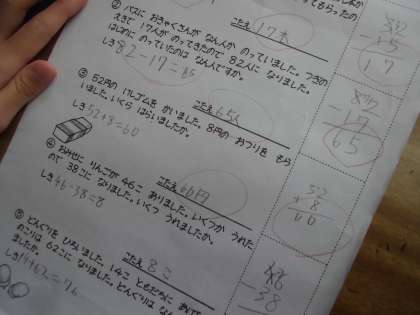 こたえ 17本
32
- 15
17
② バスに おきゃくさんが なん人か のっていました。つぎの
えきで 17人が のってきたので 82人に なりました。
はじめに のっていたのは なん人ですか。
しき 82-17=65
こたえ 65人
82
- 17
65
③ 52円の けしゴムを かいました。8円の おつりを もら
いました。いくら はらいましたか。
しき 52+8=60
こたえ 60円
52
+ 8
60
④ おみせに りんごが 46こ ありました。いくつか うれた
ので 38こに なりました。いくつ うれましたか。
しき 46-38=8
こたえ 8こ
46
- 38
⑤ どんぐりを ひろいました。14こ ともだちに あげ
のこりは 62こに なりました。どんぐりは
ましたか。
しき 14+62=76